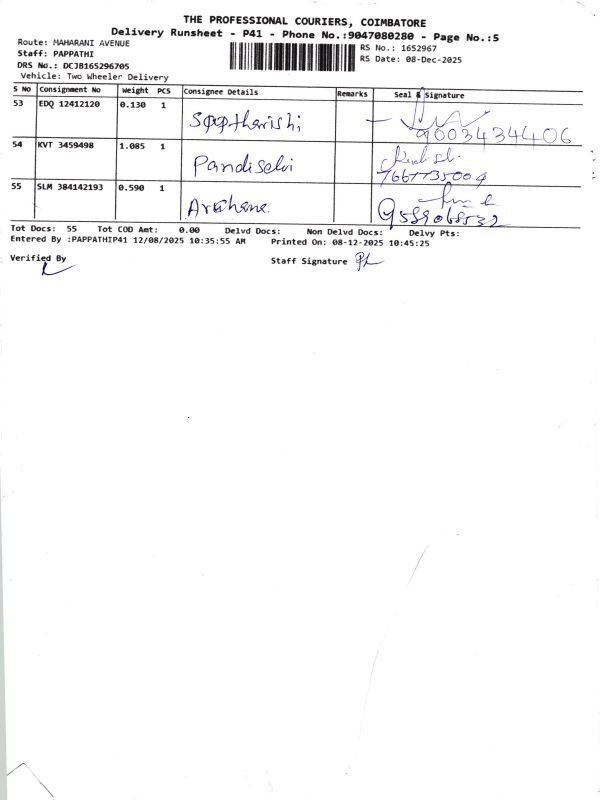 THE PROFESSIONAL COURIERS, COIMBATORE
Delivery Runsheet - P41 - Phone No.:9047080280 - Page No.:5
Route: MAHARANI AVENUE
Staff: PAPPATHI
DRS No.: DCJB165296705
Vehicle: Two Wheeler Delivery
RS No.: 1652967
RS Date: 08-Dec-2025
S No Consignment No Weight PCS Consignee Details Remarks Seal & Signature
53 EDQ 12412120 0.130 1 9003434406
54 KVT 3459498 1.085 1 Pandiselvi
55 SLM 384142193 0.590 1 Archana
Tot Docs: 55 Tot COD Amt: 0.00 Delvd Docs: Non Delvd Docs: Delvy Pts:
Entered By :PAPPATHIP41 12/08/2025 10:35:55 AM Printed On: 08-12-2025 10:45:25
Verified By Staff Signature